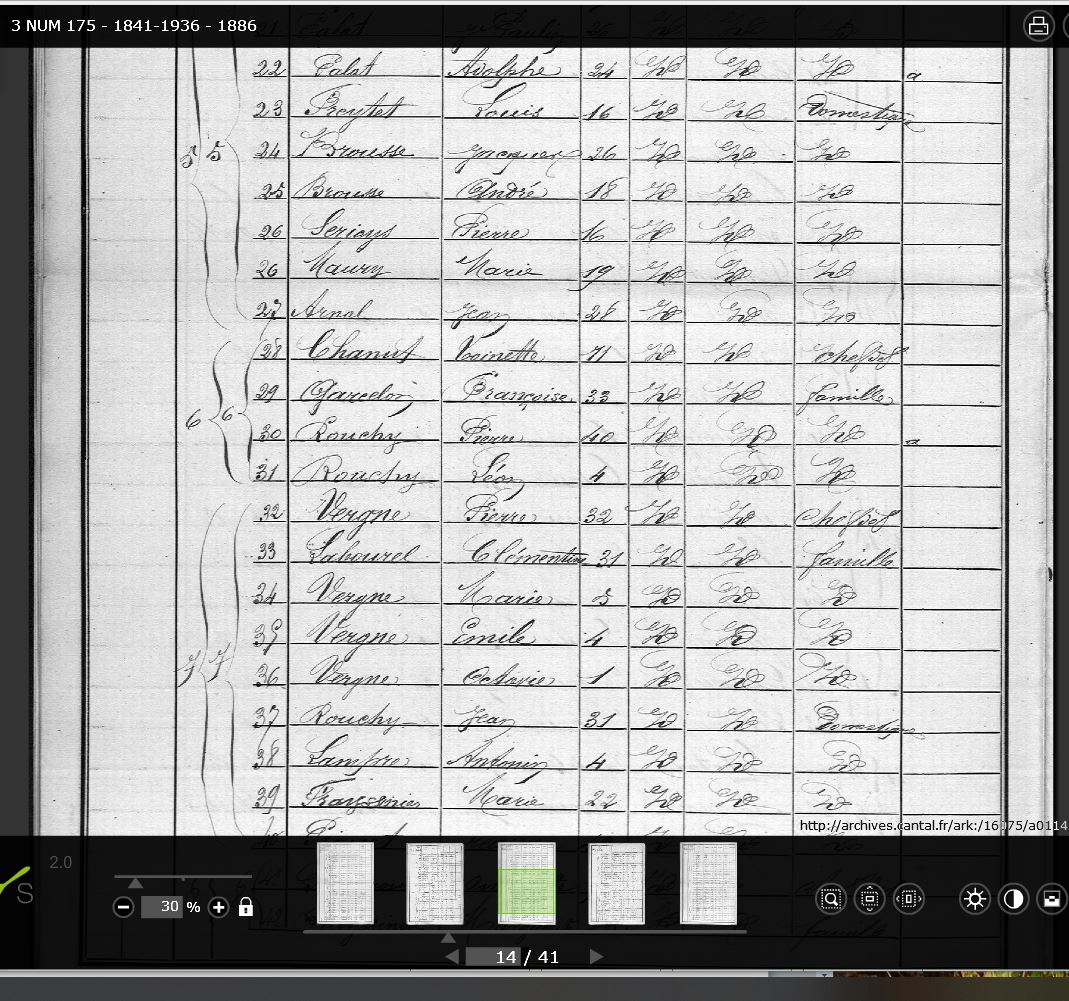 3 NUM 175 - 1841-1936 - 1886
22 Calat Adolphe 24 Id Id Id a
23 Freytet Louis 16 Id Id Domestique
24 Brousse Jacques 26 Id Id Id
25 Brousse André 18 Id Id Id
26 Serieys Pierre 16 Id Id Id
26 Maury Marie 19 Id Id Id
27 Arnal Jean 28 Id Id Id
28 Chanut Toinette 71 Id Id chefs de
29 Garcelon Françoise 33 Id Id famille
30 Rouchy Pierre 40 Id Id Id a
31 Rouchy Léon 4 Id Id Id
32 Vergne Pierre 32 Id Id Chefs de
33 Labourel Clémentine 31 Id Id famille
34 Vergne Marie 5 Id Id Id
35 Vergne Emile 4 Id Id Id
36 Vergne Octavie 1 Id Id Id
37 Rouchy Jean 31 Id Id Domestique
38 Antonin 4 Id Id Id
39 Marie 22 Id Id Id
5 5
6 6
7 7
http://archives.cantal.fr/ark:/16075/a0114
2.0
S
30 %
14 / 41